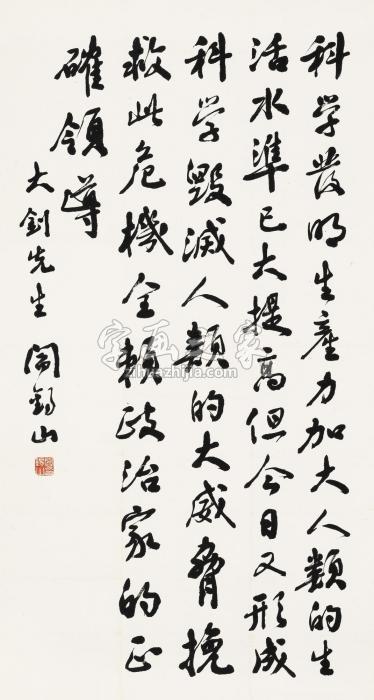 科学發明生產力加大人類的生
活水準已大提高但今日又形成
科学毀滅人類的大威脅挽
救此危機全賴政治家的正
確領導
大釗先生 閻錫山
字画搜索
zihuazhijia.com